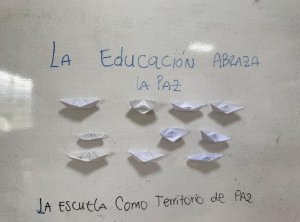 LA EDUCACIÓN ABRAZA
LA PAZ
LA ESCUELA COMO TERRITORIO DE PAZ